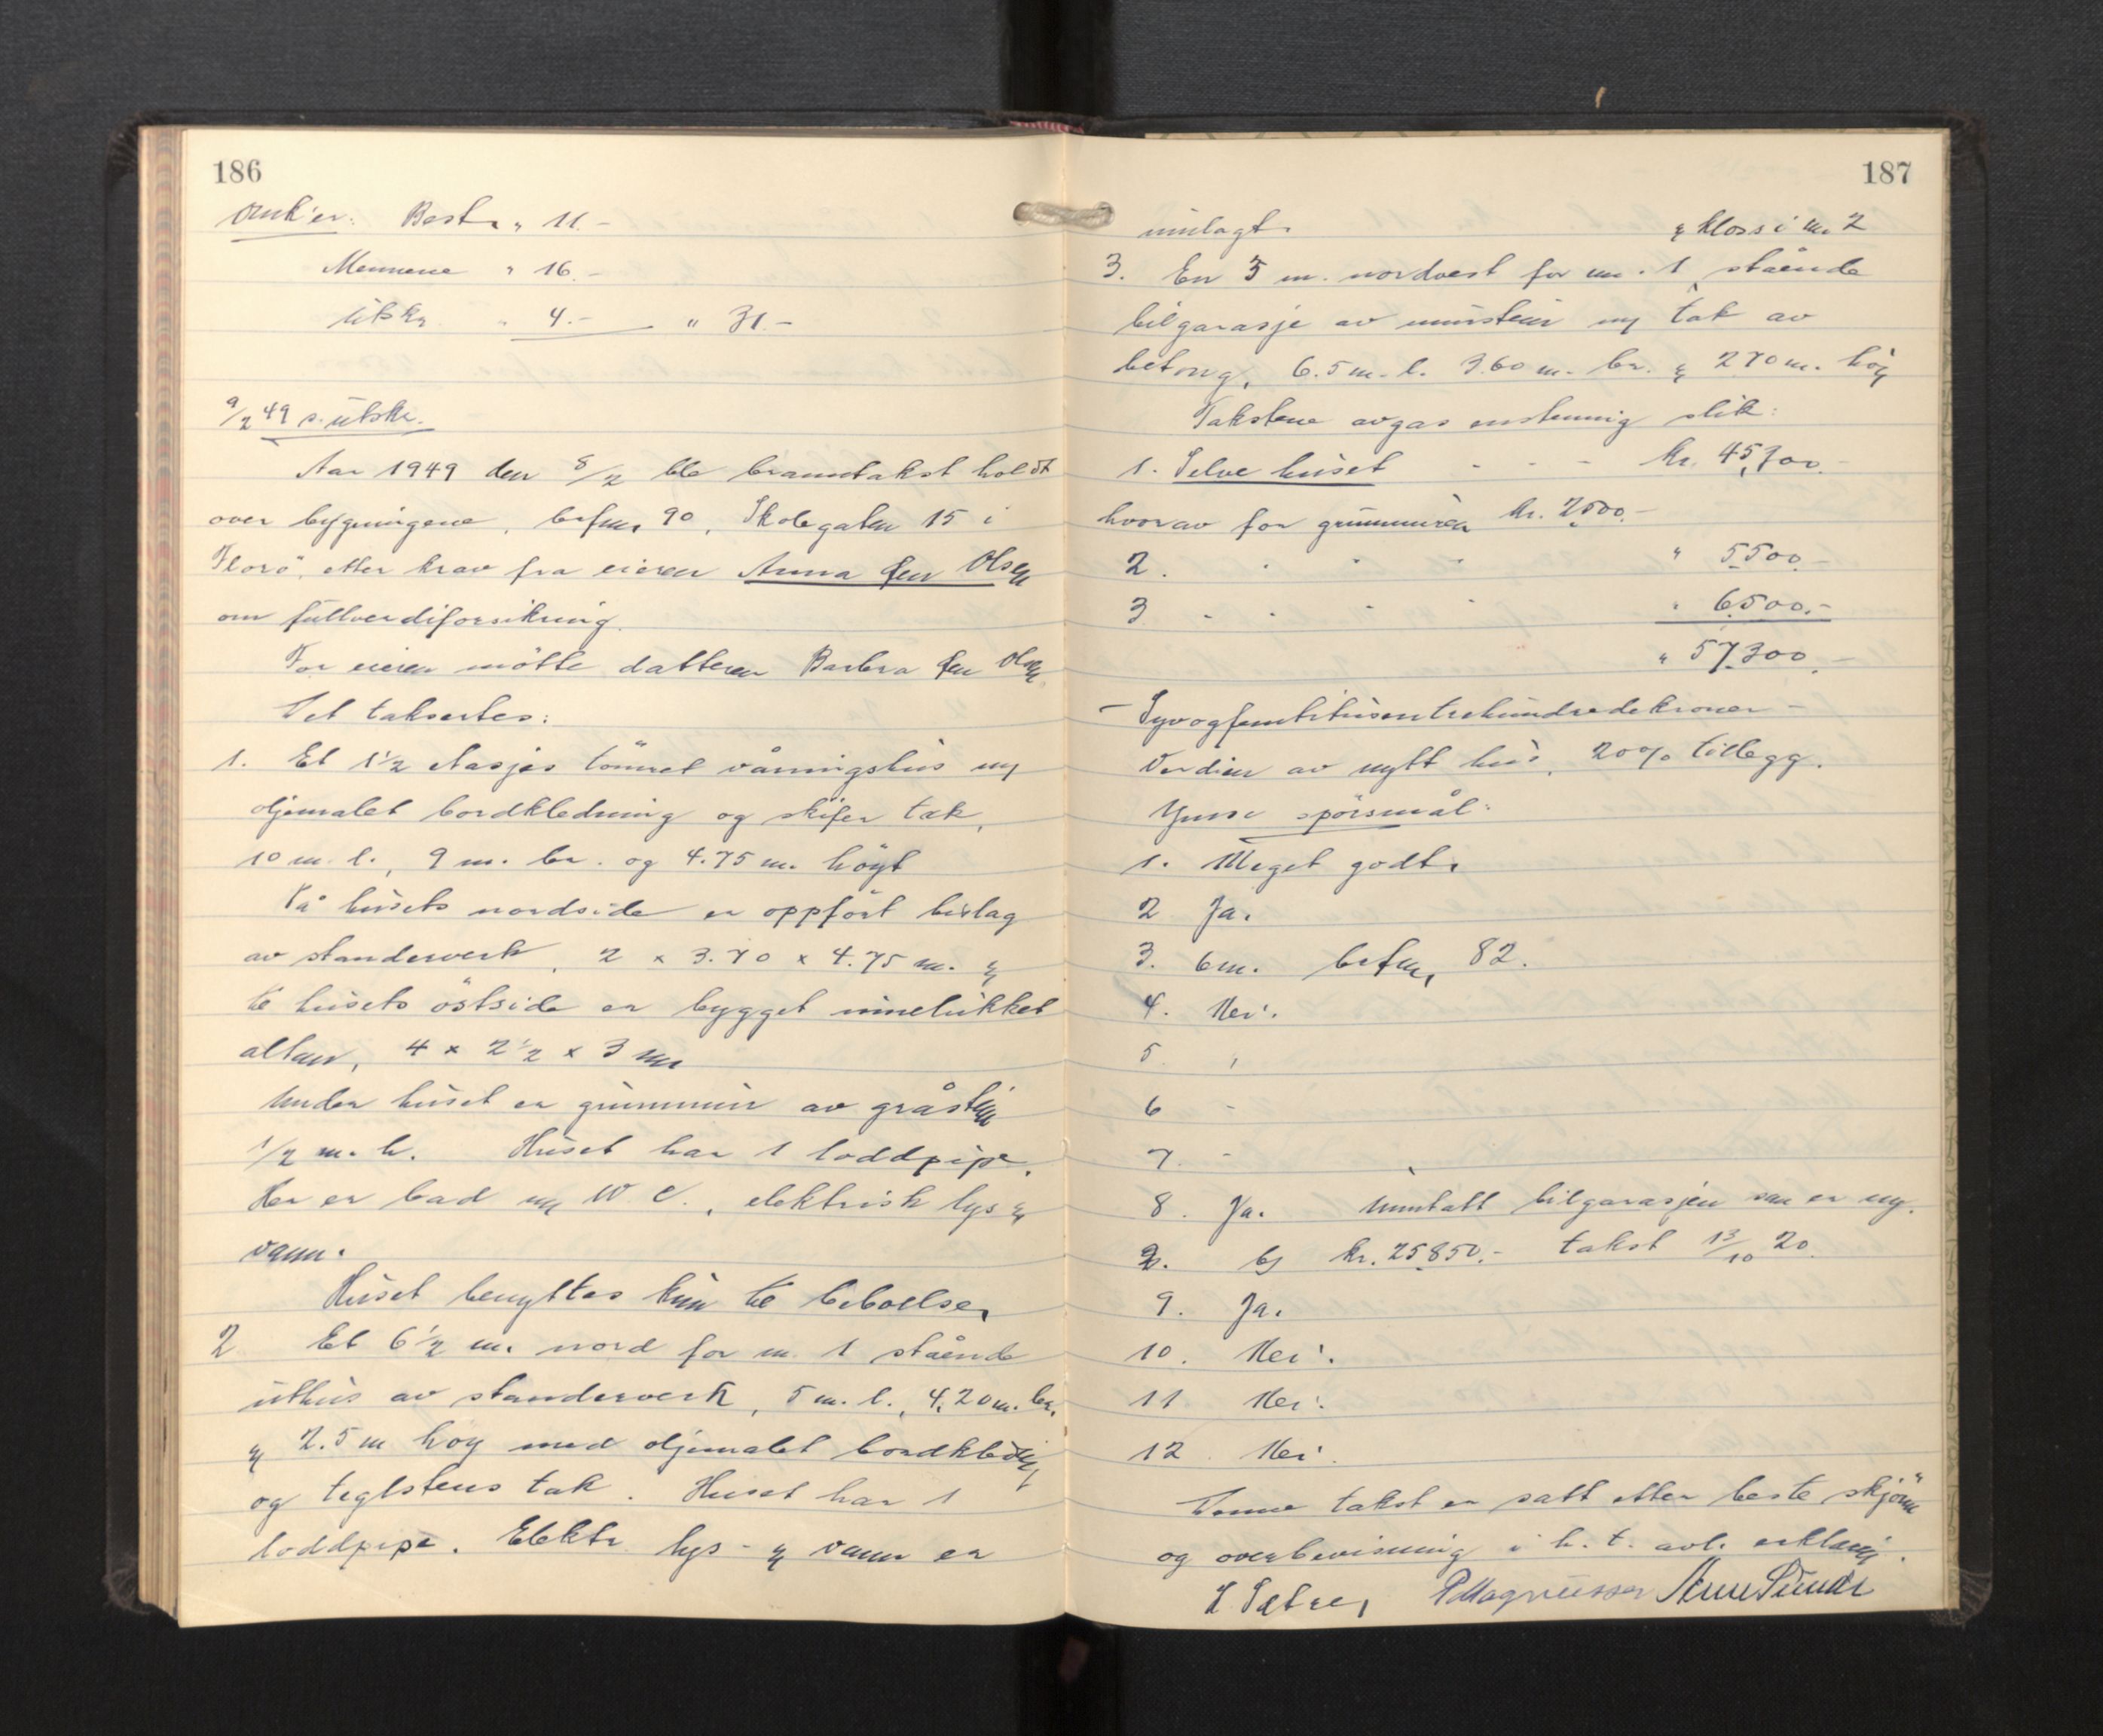 186
Omk'er: Bestr " 11.-
Mennene " 16.-
Utskr. " 4.- " 31.-
9/2 49 s. utskr.
Aar 1949 den 8/2 ble branntakst holdt
over bygningene, brfnr. 90, Skolegaten 15 i
Florö, etter krav fra eieren Anna Olsen
om fullverdiforsikring.
For eieren mötte datteren Barbra Olsen
Det taksertes:
1. Et 1 1/2 etasjes tömret våningshus m/
oljemalet bordkledning og skifer tak,
10 m. l., 9 m. br. og 4.75 m. höyt
På husets nordside er oppfört bislag
av standerverk, 2 x 3.70 x 4.75 m. &
til husets östside er bygget innelukket
altan, 4 x 2 1/2 x 3 m
Under huset er grunnmur av gråstein
1/2 m. h. Huset har 1 loddpipe.
Her er bad og W.C., elektrisk lys &
vann.
Huset benyttes kun til beboelse.
2 Et 6 1/2 m. nord for nr. 1 stående
uthus av standerverk, 5 m. l., 4.20 m. br.
& 2.5 m höy med oljemalet bordkledning
og teglstens tak. Huset har 1
loddpipe. Elektr. lys - & vann er
187
innlagt. & kloss i nr. 2
3. En 3 m. nordvest for nr. 1 stående
bilgarasje av murstein m/ tak av
betong, 6.5 m. l. 3.60 m. br. & 2.70 m. höy
Takstene avgas enstemmig slik:
1. Selve huset - - - kr. 45,300.-
hvorav for grunnmuren kr. 2500.-
2. " " " " 5500.-
3 " " " " " 6500.-
" 57.300.-
- Syvogfemtitusentrehundredekroner -
Verdien av nytt hus, 20% tillegg.
Ymse spörsmål:
1. Meget godt.
2 Ja.
3. 6 m. brfnr. 82.
4. Nei.
5. "
6 -
7. -
8. Ja. Unntatt bilgarasjen som er ny.
2. b) kr. 25850.- takst 13/10 20.
9. Ja.
10. Nei.
11 Nei.
12. Nei.
Denne takst er satt etter beste skjönn
og overbevisning i h. t. avl. erklæring.
P Magnussen